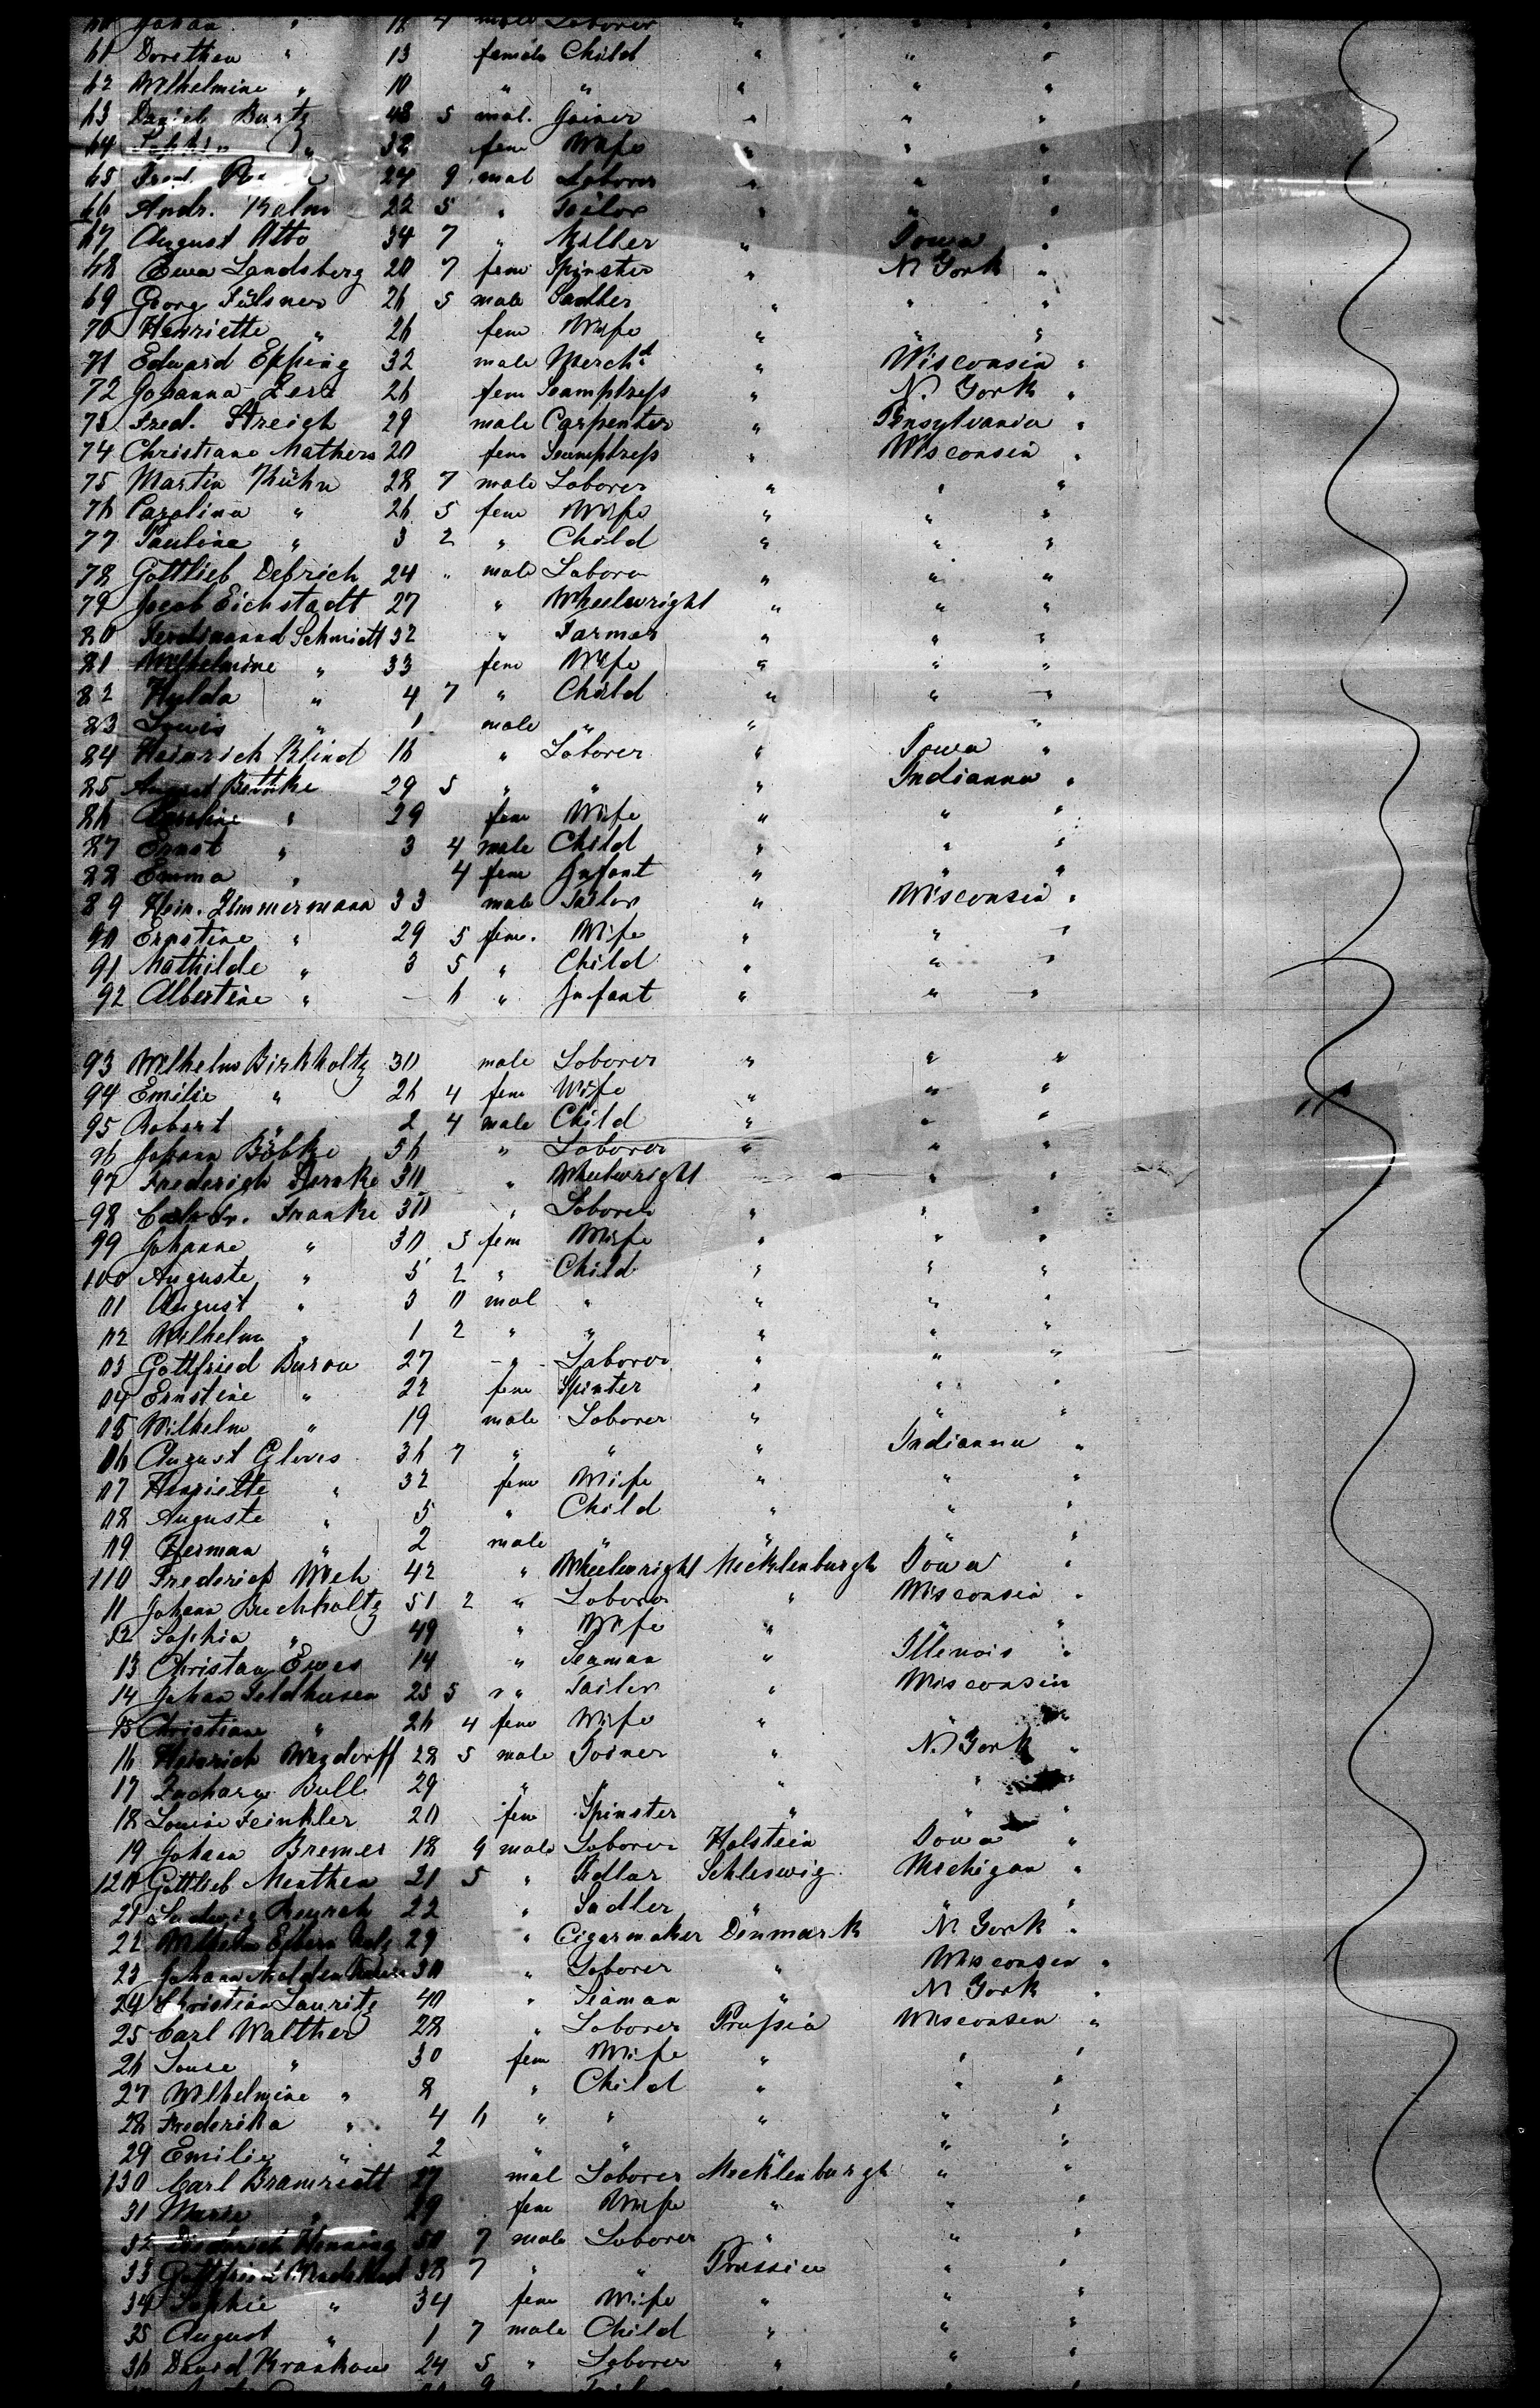 60 Johan " 17 4 male Laborer " " "
61 Dorothea " 13 female Child " " "
62 Wilhelmine " 10 " " " " "
63 Daniel Bartz 48 5 mal. Joiner " " "
64 " 32 fem Wife " " "
65 Fred 24 9 mal Laborer " " "
66 Andr. Kalm 22 5 " Tailor " " "
67 August Otto 34 7 " Miller " Iowa "
68 Ewa Landsberg 20 7 fem Spinster " N York "
69 Georg Fülsner 26 5 male Sadler " " "
70 Henriette " 26 fem Wife " " "
71 Edward Epping 32 male Mercht " Wisconsin "
72 Johanna 26 fem Seamptress " N. York "
73 Fred. Streich 29 male Carpenter " Pensylvania "
74 Christiane Mathers 20 fem Seamptress " Wisconsin "
75 Martin Kühn 28 7 male Laborer " " "
76 Carolina " 26 5 fem Wife " " "
77 Pauline " 3 2 " Child " " "
78 Gottlieb Debrich 24 " male Labore " " "
79 Jacob Eichstadt 27 " Wheelwright " " "
80 Ferdinannd Schmidt 32 " Farmer " " "
81 Wilhelmine " 33 fem Wife " " "
82 Hulda " 4 7 " Child " " "
83 Lowis " 1 male " " "
84 Heinrich Blind 16 " Laborer " Iowa "
85 August Bethke 29 5 " " " Indianna "
86 " 29 fem Wife " " "
87 Ernst " 3 4 male Child " " "
88 Emma " 4 fem Infant " " "
89 Hein. Zimmermann 33 male Tailor " Wisconsin "
90 Ernstine " 29 5 fem. Wife " " "
91 Mathilde " 3 5 " Child " " "
92 Albertine " - 6 " Infant " " "
93 Wilhelm Birkholtz 30 male Laborer " " "
94 Emilie " 26 4 fem Wife " " "
95 Robert " 2 4 male Child " " "
96 Johann Böbke 56 " Laborer " " "
97 Frederich 30 " Wheelwright " "
98 Franke 30 " Laborer " " "
99 Johanne " 30 5 fem Wife " " "
100 Auguste " 5 2 " Child " " "
01 August " 3 0 mal " " " "
02 Wilhelm " 1 2 " " " " "
03 Gottfried Burow 27 " Laborer " " "
04 Ernstine " 22 fem Spinter " " "
05 Wilhelm " 19 male Laborer " " "
06 August Gloves 36 7 " " " Indianna "
07 Henriette " 32 fem Wife " " "
08 Auguste " 5 " Child " " "
09 Herman " 2 male " " " "
110 Frederich Weh 42 " Wheelwright Mecklenburgh Iowa "
11 Johann Buchholtz 51 2 " Laborer " Wisconsin "
12 Sophia " 49 " Wife " " "
13 Christan Ewes 14 " Seaman " Illenois "
14 Johan Feldhusen 25 5 " Tailor " Wisconsin
15 Christiane " 26 4 fem Wife " " "
16 Heinrich Wegdorff 28 5 male Joiner " N. York "
17 Zacharie Bull 29 " " " " "
18 Louise Feinkler 20 fem Spinster " " "
19 Johann Bremer 18 9 male Laborer Holstein Iowa "
120 Gottlieb Menthen 21 5 " Sadlar Schleswig Michigan "
21 Ludwig 22 " Sadler " " "
22 Wilhelm 29 " Cigarmaker Denmark N. York "
23 Johann 30 " Laborer " Wisconsen "
24 Christian Lauritz 40 " Seaman " N York "
25 Carl Walther 28 " Laborer Prussia Wisconsen "
26 Louse " 30 fem Wife " " "
27 Wilhelmine " 8 " Child " " "
28 Frederika " 4 6 " " " " "
29 Emilie " 2 " " " "
130 Carl Bramriedt 27 mal Laborer Mecklenburgh " "
31 Marie " 29 fem Wife " " "
32 Henning 50 7 male Laborer " " "
33 Gottfried 38 7 " " Prussia " "
34 Sophie " 34 fem Wife " " "
35 August " 1 7 male Child " " "
36 David Krankow 24 5 " Laborer " " "